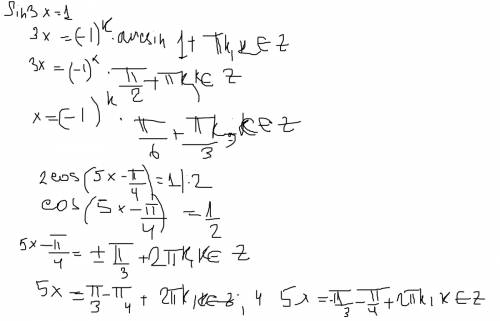 Sin3x=1
3x=(-1)^k·arcsin 1+πk, k∈Z
3x=(-1)^k·π/2+πk, k∈Z
x=(-1)^k·π/6+πk/3, k∈Z
2cos(5x-π/4)=1|·2
cos(5x-π/4)=1/2
5x-π/4=±π/3+2πk, k∈Z
5x=π/3-π/4+2πk, k∈Z; и 5x=-π/3-π/4+2πk, k∈Z